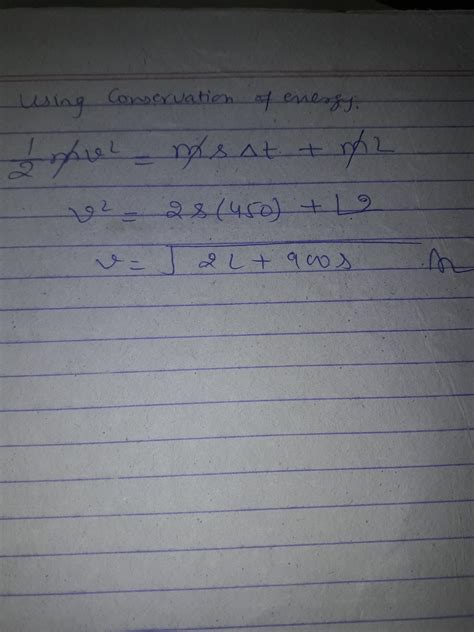 using Conservation of energy.
1/2 mv² = ms Δt + mL
v² = 2s(450) + L2
v = √2L + 900s